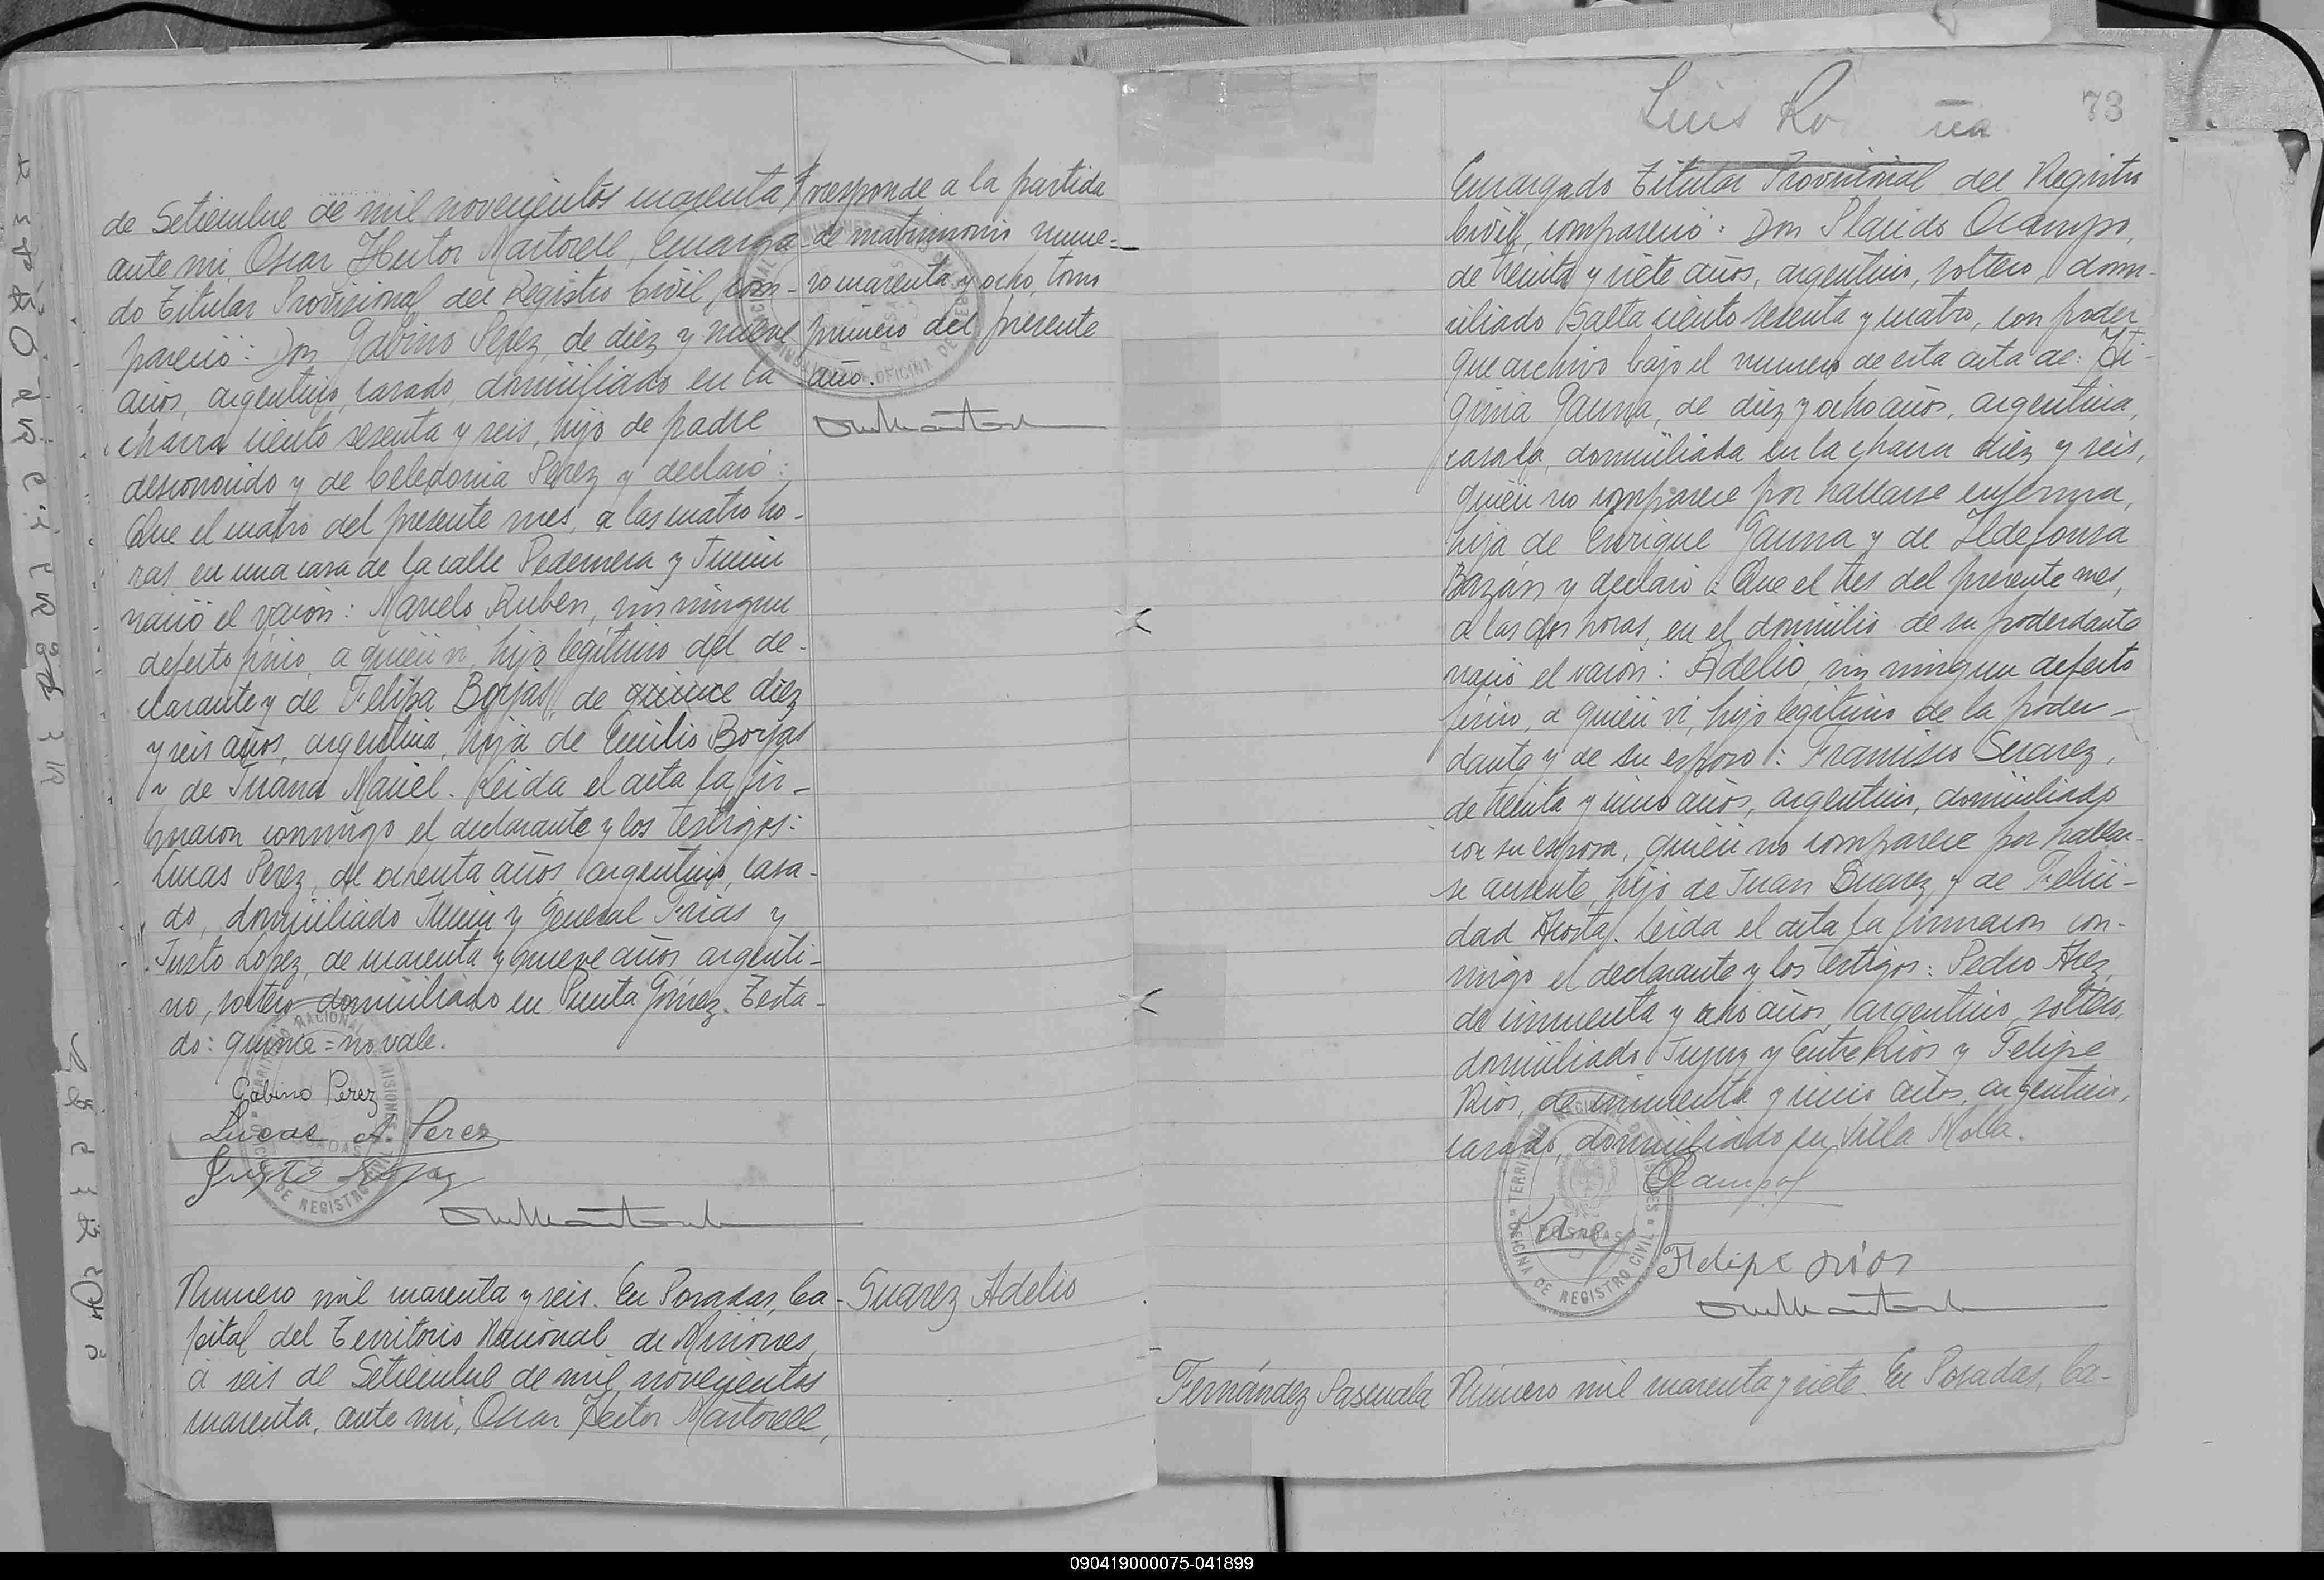 de Setiembre de mil novecientos cuarenta,
ante mi, Oscar Hector Martorell, Encarga-
do Titular Provisional del Registro Civil, com-
pareció: Don Gabino Perez, de diez y nueve
años, argentino, casado, domiciliado en la
chacra ciento sesenta y seis, hijo de padre
desconocido y de Celedonia Perez y declaró:
Que el cuatro del presente mes, a las cuatro ho-
ras, en una casa de la calle Pedernera y Junin
nació el varón: Marcelo Ruben, sin ningun
defecto fisico, a quién vi, hijo legítimo del de-
clarante y de Felipa Borjas, de quince diez
y seis años, argentina, hija de Emilio Borjas
y de Juana Maciel. Leida el acta la fir-
maron conmigo el declarante y los testigos:
Lucas Perez, de ochenta años, argentino, casa-
do, domiciliado Junin y General Frias y
Justo Lopez, de cuarenta y nueve años argenti-
no, soltero domiciliado en Punta Gómez. Testa-
do: quince = no vale.
Gabino Perez
Lucas A. Perez
Justo Lopez
rresponde a la partida
de matrimonio nume-
ro cuarenta y ocho, tomo
primero del presente
año.
Numero mil cuarenta y seis. En Posadas, Ca-
pital del Territorio Nacional de Misiones,
a seis de Setiembre de mil novecientos
cuarenta, ante mi, Oscar Hector Martorell,
Suarez Adelio
Luis Ro
73
Encargado Titular Provisional del Registro
Civil, compareció: Don Placido Ocampo,
de treinta y siete años, argentino, soltero, domi-
ciliado Salta ciento sesenta y cuatro, con poder
que archivo bajo el numero de esta acta de: Hi-
ginia Gauna, de diez y ocho años, argentina,
casada, domiciliada en la chacra diez y seis,
quién no comparece por hallarse enferma,
hija de Enrique Gauna y de Ildefonsa
Bazán y declaró: Que el tres del presente mes,
a las dos horas, en el domicilio de su poderdante
nació el varón: Adelio, sin ningun defecto
fisico, a quién vi, hijo legítimo de la poder-
dante y de su esposo: Francisco Suarez,
de treinta y cinco años, argentino, domiciliado
con su esposa, quién no comparece por hallar-
se ausente, hijo de Juan Suarez y de Felici-
dad Acosta. Leida el acta la firmaron con-
migo el declarante y los testigos: Pedro Arez,
de cincuenta y ocho años, argentino, soltero,
domiciliado Jujuy y Entre Rios y Felipe
Rios, de cincuenta y cinco años, argentino,
casado, domiciliado en Villa Mola.
Ocampo
Felipe rios
Fernández Pascuala
Número mil cuarenta y siete. En Posadas, Ca-
TERRITORIO NACIONAL DE MISIONES
OFICINA DE REGISTRO CIVIL
POSADAS
090419000075-041899